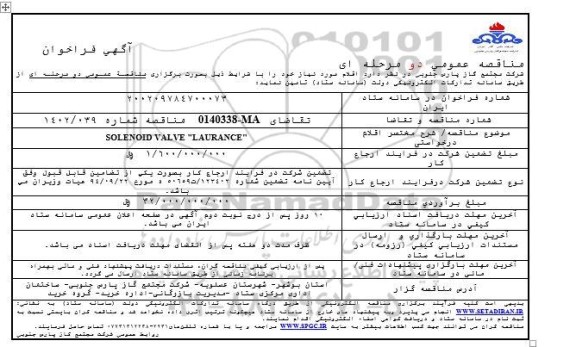 آگهی فراخوان
مناقصه عمومی دو مرحله ای
شرکت مجتمع گاز پارس جنوبی در نظر دارد اقلام مورد نیاز خود را با شرایط ذیل بصورت برگزاری مناقصه عمومی دو مرحله ای از
طریق سامانه تدارکات الکترونیکی دولت (سامانه ستاد) تامین نماید:
شماره فراخوان در سامانه ستاد ایران
۲۰۰۲۰۹۷۸۴۷۰۰۰۰۷۳
شماره مناقصه و تقاضا
تقاضای 0140338-MA مناقصه شماره ۱۴۰۲/۰۳۹
موضوع مناقصه/ شرح مختصر اقلام درخواستی
SOLENOID VALVE "LAURANCE"
مبلغ تضمین شرکت در فرایند ارجاع کار
۱/۶۰۰/۰۰۰/۰۰۰ ریال
نوع تضمین شرکت درفرایند ارجاع کار
تضمین شرکت در فرایند ارجاع کار بصورت یکی از تضامین قابل قبول وفق
آیین نامه تضمین شماره ۱۲۳۴۰۲/ت۵۰۶۵۹ ه مورخ ۹۴/۰۹/۲۲ هیات وزیران می
باشد.
مبلغ برآوردی مناقصه
۳۲/۰۰۰/۰۰۰/۰۰۰ ریال
آخرین مهلت دریافت اسناد ارزیابی کیفی در سامانه ستاد
۱۰ روز پس از درج نوبت دوم آگهی در صفحه اعلان عمومی سامانه ستاد
ایران می باشد.
آخرین مهلت بارگذاری و ارسال مستندات ارزیابی کیفی (رزومه) در سامانه ستاد
ظرف مدت دو هفته پس از انقضای مهلت دریافت اسناد می باشد.
آخرین مهلت بارگزاری پیشنهادات فنی/ مالی در سامانه ستاد
پس از ارزیابی کیفی مناقصه گران، مستندات دریافت پیشنهاد فنی و مالی بهمراه
برنامه زمانی از طریق سامانه ستاد ارسال می گردد.
آدرس مناقصه گزار
استان بوشهر- شهرستان عسلویه- شرکت مجتمع گاز پارس جنوبی- ساختمان
اداری مرکزی ستاد -مدیریت بازرگانی-اداره خرید- گروه خرید
بدیهی است کلیه فرآیند برگزاری مناقصه الکترونیکی از طریق درگاه سامانه تدارکات الکترونیکی دولت (سامانه ستاد) به نشانی:
WWW.SETADIRAN.IR
مناقصه گران می توانند جهت کسب اطلاعات بیشتر به سایت WWW.SPGC.IR مراجعه و یا با شماره تلفن تماس حاصل فرمایند.
روابط عمومی شرکت مجتمع گاز پارس جنوبی